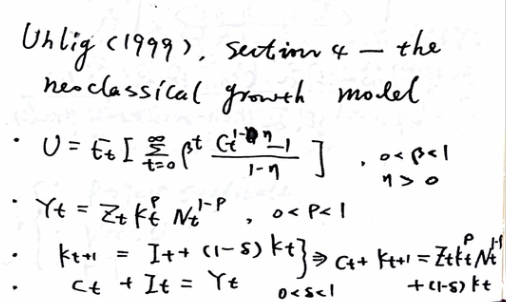 Uhlig (1999), section 4 — the
neoclassical growth model
· U = E_t [ Σ_{t=0}^{∞} β^t (C_t^{1-η} - 1)/(1-η) ] , 0<β<1
η > 0
· Y_t = Z_t K_t^ρ N_t^{1-ρ} , 0<ρ<1
· K_{t+1} = I_t + (1-δ) K_t } ⇒ C_t + K_{t+1} = Z_t K_t^ρ N_t^{1-ρ}
· C_t + I_t = Y_t 0<δ<1 + (1-δ) K_t